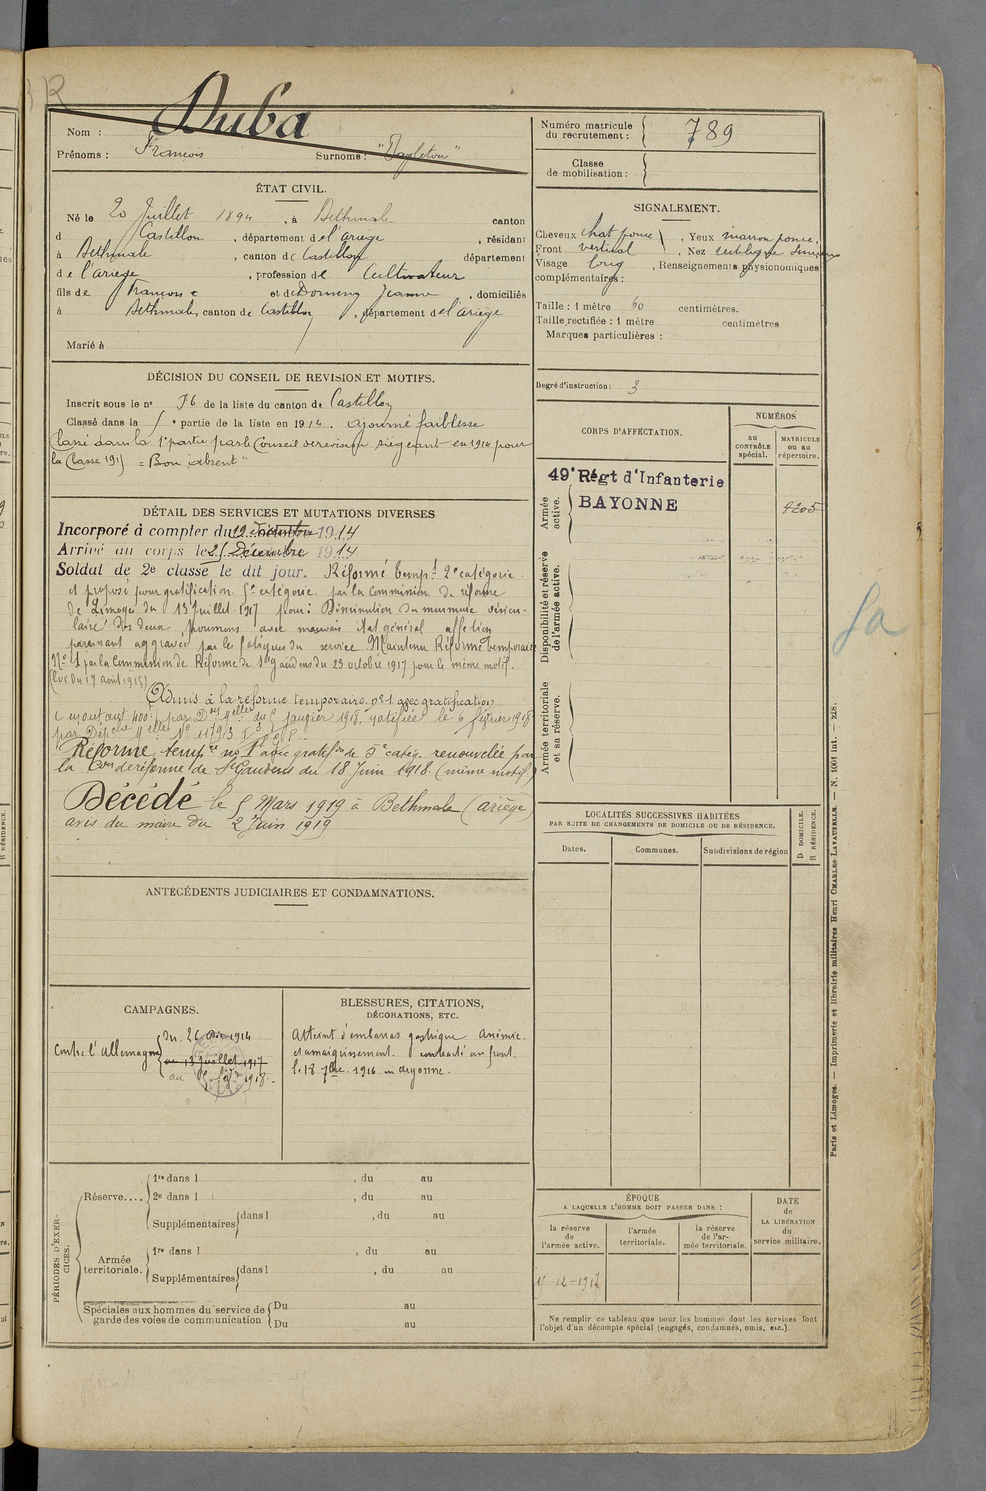 R
Nom : Duba
Prénoms : François Surnoms : "Tayleton"
ÉTAT CIVIL.
Né le 20 Juillet 1894, à Bethmale canton
d Castillon, département de l'ariège, résidant
à Bethmale, canton de Castillon département
de l'ariège, profession de Cultivateur
fils de François et de Domenq Jeanne, domiciliés
à Bethmale, canton de Castillon, département de l'ariège
Marié à
DÉCISION DU CONSEIL DE REVISION ET MOTIFS.
Inscrit sous le no 76 de la liste du canton de Castillon
Classé dans la 5e partie de la liste en 1914. ajourné faiblesse
Classé dans la 1e partie par le Conseil de revision siégeant en 1914 pour
la Classe 1915 = Bon absent"
DÉTAIL DES SERVICES ET MUTATIONS DIVERSES
Incorporé à compter du 19 1914
Arrivé au corps le 21 Décembre 1914
Soldat de 2e classe le dit jour. Réformé tempre 2e catégorie
et proposé pour gratification 5e catégorie par la commission de réforme
de Limoges du 13 Juillet 1917 pour : Diminution du murmure vésicu-
laire des deux poumons avec mauvais état général affection
paraissant aggravée par les fatigues du service Maintenu Réformé temporaire
No 1 par la Commission de Réforme de St Gaudens du 23 octobre 1917 pour le même motif.
(Circ du 17 août 1915)
Admis à la reforme temporaire no 1 avec gratification
par Don Melle du 5 janvier 1918 notifiée le 6 février 1918
par Dépêche Melle No 11793
Réformé tempre no 1 avec gratifon de 5e catég. renouvelée par
la Con de réforme de St Gaudens du 18 Juin 1918 (même motif)
Décédé le 5 Mars 1919 à Bethmale (ariège)
avis du maire du 2 Juin 1919
ANTÉCÉDENTS JUDICIAIRES ET CONDAMNATIONS.
CAMPAGNES.
Contre l'allemagne du 26 1914
au 13 juillet 1917
au 5 1918
BLESSURES, CITATIONS,
DÉCORATIONS, ETC.
Atteint d'embarras gastrique anémie.
et amaigrissement. contracté au front.
le 18 7bre 1916 en argonne.
PÉRIODES D'EXERCICES.
Réserve.... 1re dans l , du au
2e dans l , du au
Supplémentaires dans l , du au
Armée territoriale. 1re dans l , du au
Supplémentaires dans l , du au
Spéciales aux hommes du service de garde des voies de communication Du au
Du au
Numéro matricule du recrutement : 789
Classe de mobilisation :
SIGNALEMENT.
Cheveux chat foncé, Yeux marron foncé,
Front vertical, Nez rectiligne
Visage long, Renseignements physionomiques
complémentaires :
Taille : 1 mètre 60 centimètres.
Taille rectifiée : 1 mètre centimètres
Marques particulières :
Degré d'instruction : 3
CORPS D'AFFECTATION.
NUMÉROS
au CONTRÔLE spécial.
MATRICULE ou au répertoire.
Armée active.
49e Régt d'Infanterie
BAYONNE
9205
Disponibilité et réserve de l'armée active.
Armée territoriale et sa réserve.
LOCALITÉS SUCCESSIVES HABITÉES
PAR SUITE DE CHANGEMENTS DE DOMICILE OU DE RÉSIDENCE.
Dates. Communes. Subdivisions de région
D DOMICILE.
R RÉSIDENCE.
ÉPOQUE
A LAQUELLE L'HOMME DOIT PASSER DANS :
la réserve de l'armée active.
l'armée territoriale.
la réserve de l'armée territoriale.
DATE de LA LIBÉRATION du service militaire.
15-12-1917
Ne remplir ce tableau que pour les hommes dont les services font
l'objet d'un décompte spécial (engagés, condamnés, omis, etc.).
Paris et Limoges. — Imprimerie et librairie militaires Henri CHARLES-LAVAUZELLE. — N. 1001 int. — 228.